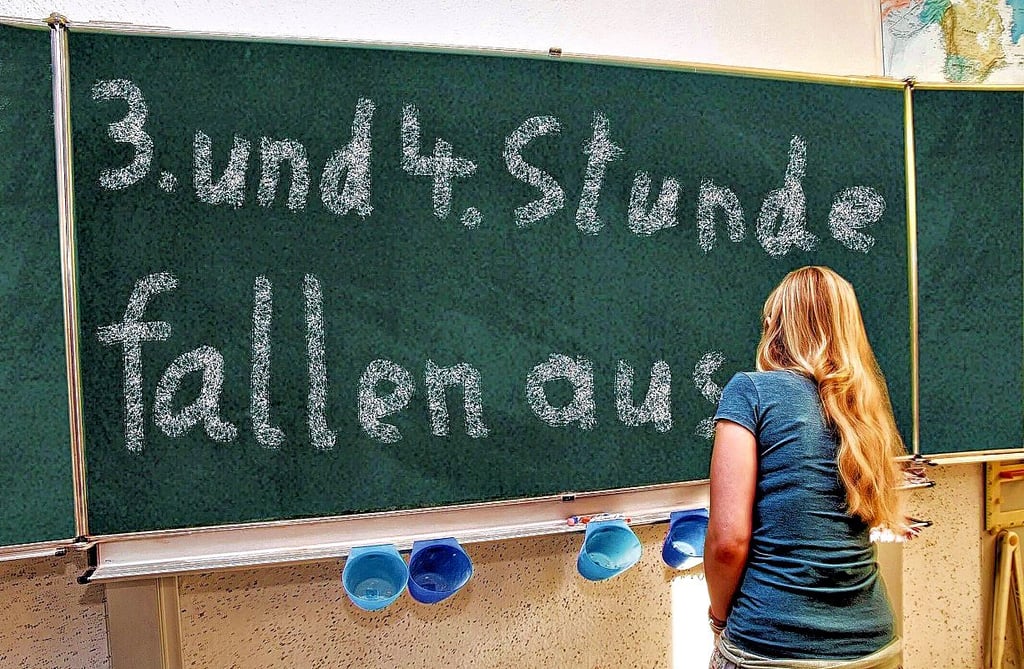 3. und 4. Stunde
fallen aus